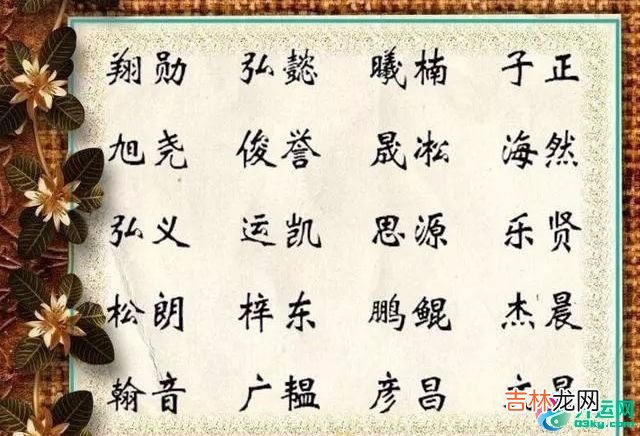 翔勋 弘懿 曦楠 子正
旭尧 俊誉 晟凇 海然
弘义 运凯 思源 乐贤
松朗 梓东 鹏鲲 杰晨
翰音 广韫 彦昌
吉林龙网
开运网
03ky.com